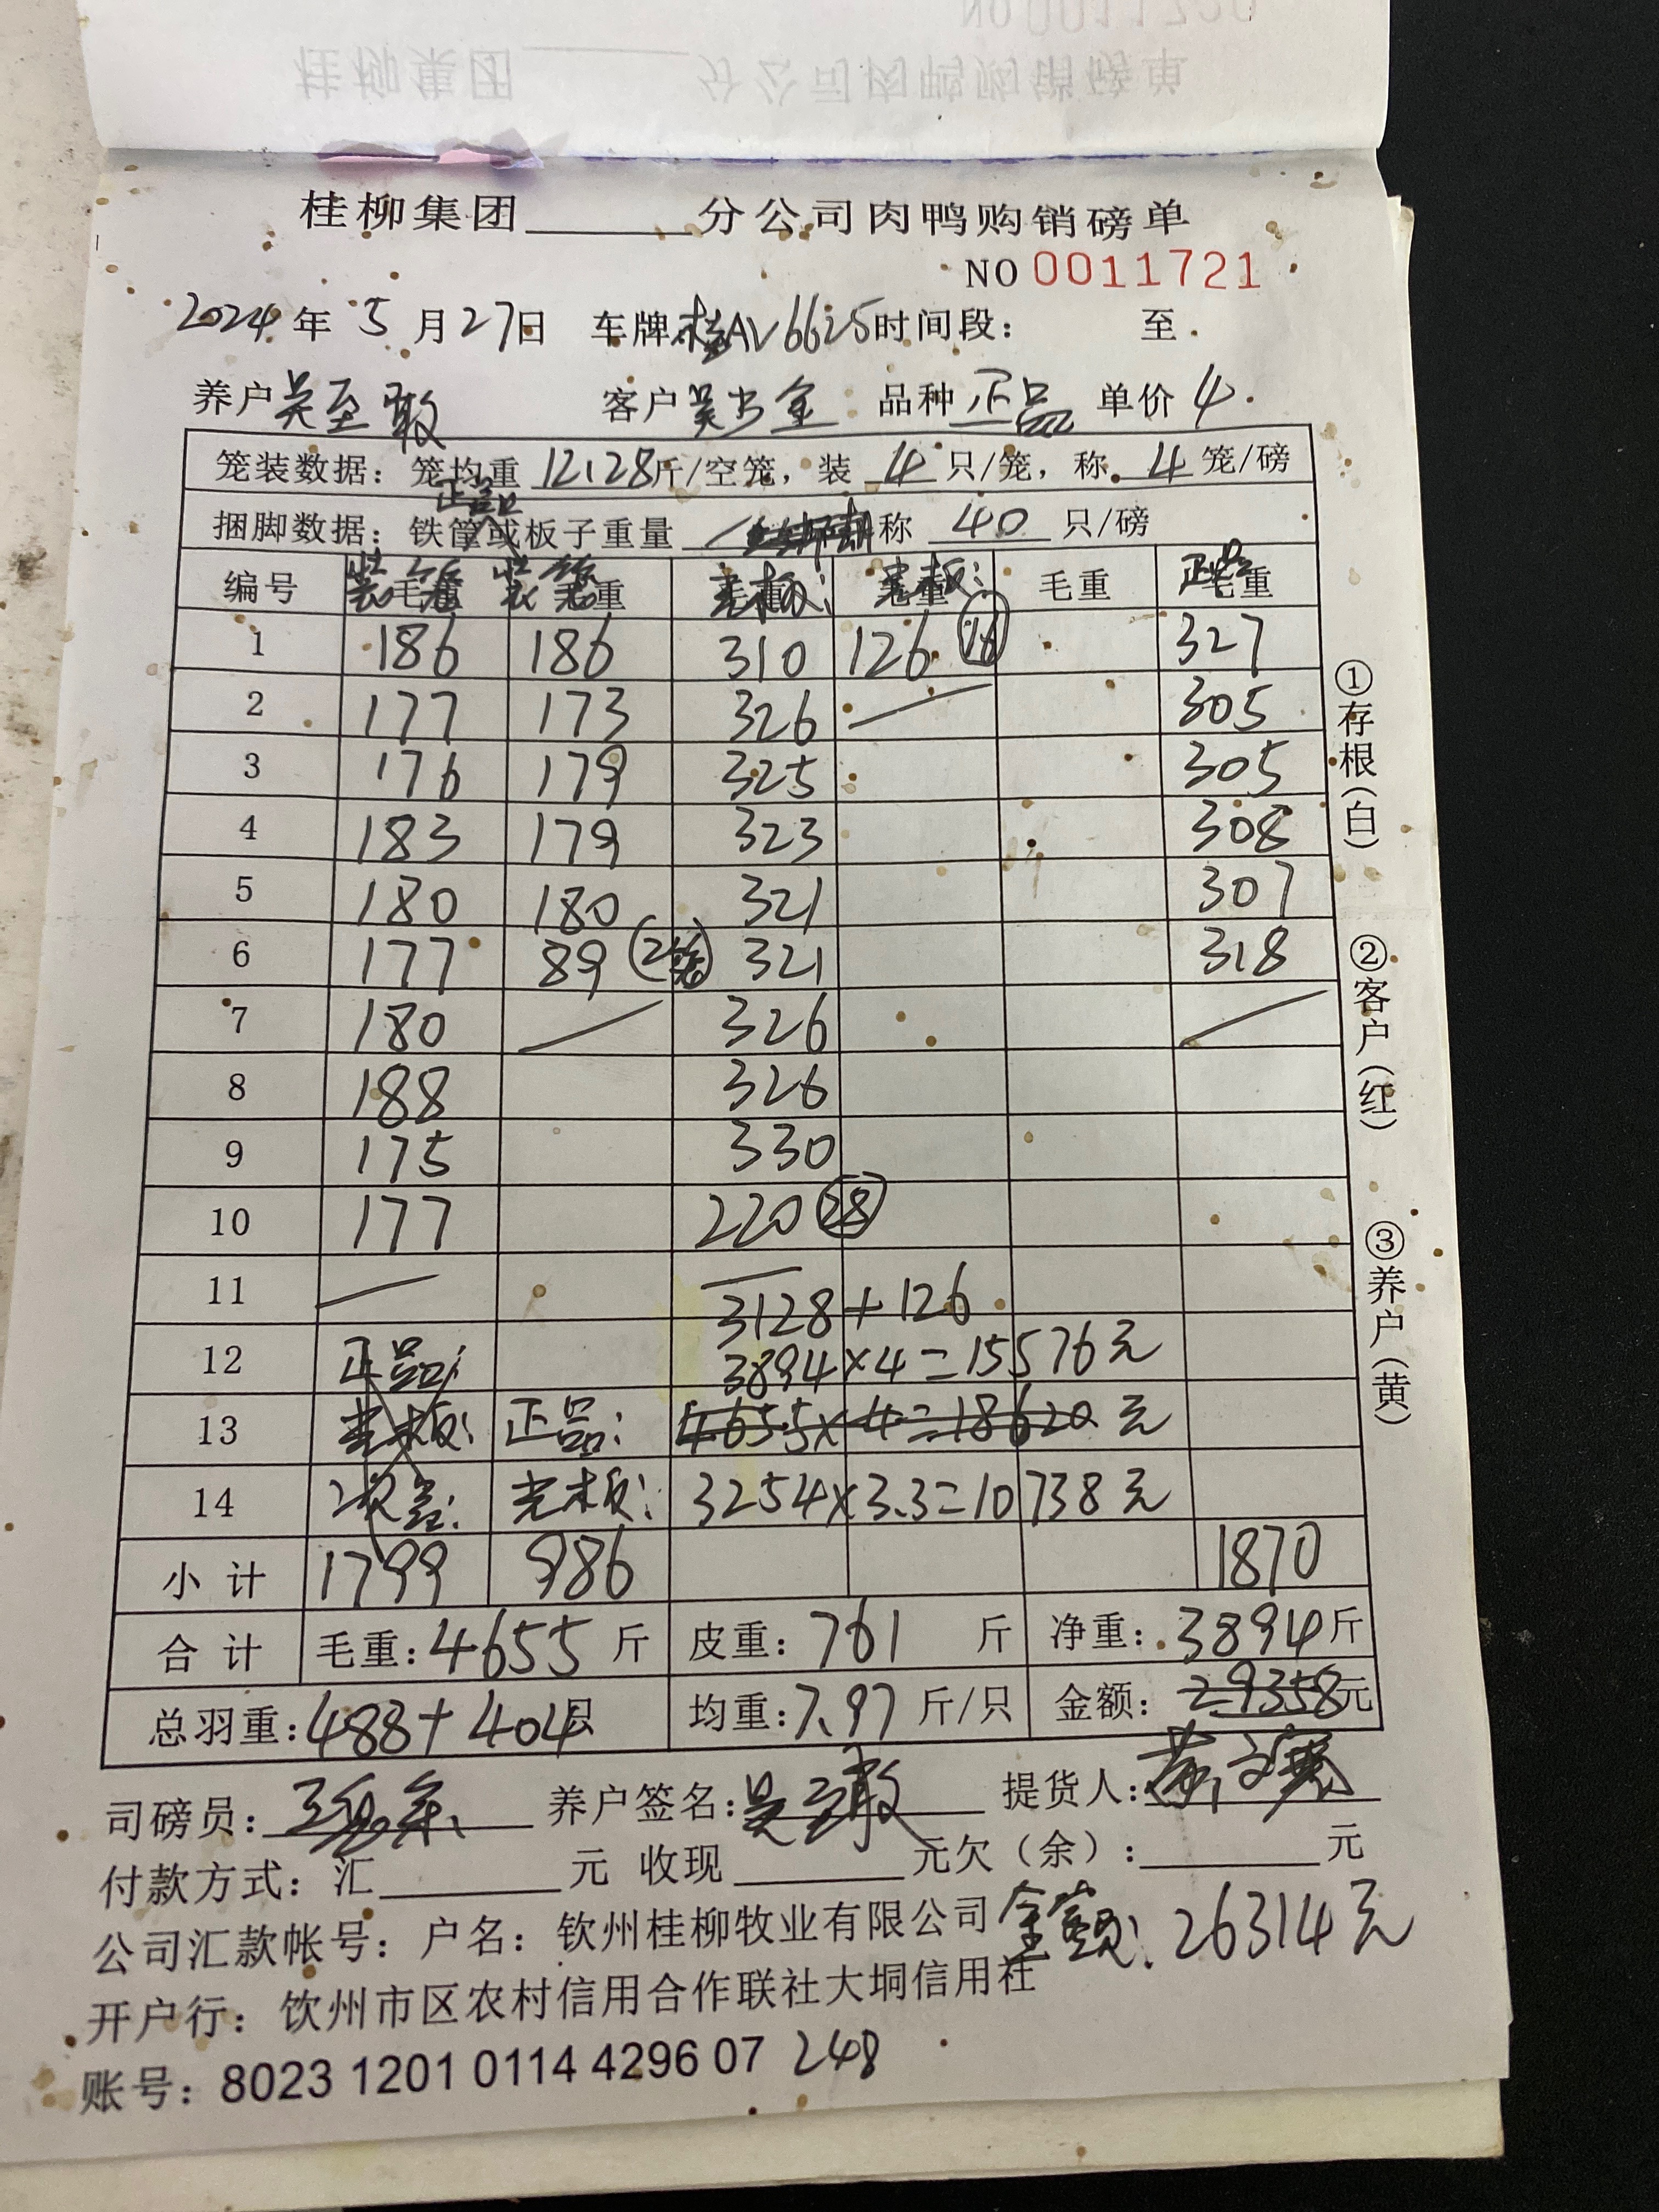 桂柳集团______分公司肉鸭购销磅单
NO 0011721
2024年 5月27日 车牌桂AV6625时间段： 至
养户 吴至敢 客户 吴少金 品种 正品 单价 4.
笼装数据：笼均重 12.128斤/空笼，装 4 只/笼，称 4 笼/磅
正品
捆脚数据：铁筐或板子重量 称 40 只/磅
编号 毛重 毛重 毛重 毛重 毛重 毛重
装笼 装笼 光板： 光板： 正品
1 186 186 310 126 (16) 327
2 177 173 326 305
3 176 179 325 305
4 183 179 323 308
5 180 180 321 307
6 177 89 (2笼) 321 318
7 180 326
8 188 326
9 175 330
10 177 220 (28)
11 3128+126
12 正品： 3894×4=15576元
13 光板： 正品： 4655×4=18620元
14 次品： 光板： 3254×3.3=10738元
小计 1799 986 1870
合计 毛重：4655斤 皮重：761 斤 净重：3894斤
总羽重：488+404只 均重：7.97斤/只 金额：29358元
司磅员： 养户签名：吴至敢 提货人：
付款方式：汇______元 收现______元欠（余）：______元
公司汇款帐号：户名：钦州桂柳牧业有限公司 金额：26314元
开户行：钦州市区农村信用合作联社大垌信用社
账号：8023 1201 0114 4296 07 248
①存根（白） ②客户（红） ③养户（黄）